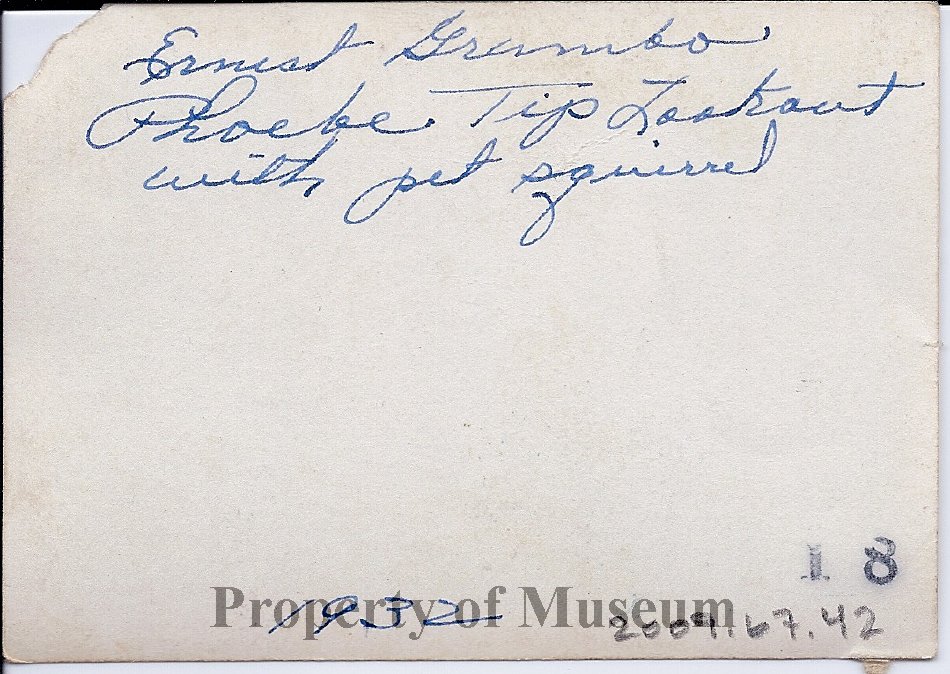 Ernest Grumbo
Phoebe Tip Lookout
with pet squirrel
1 8
Property of Museum
1932
2009.67.42